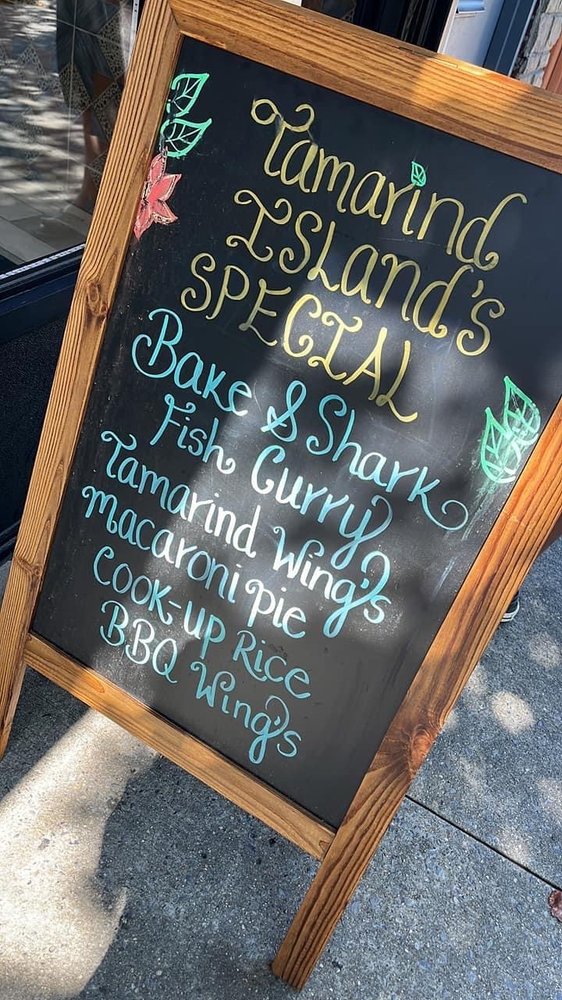 Tamarind
ISland's
SPECIAL
Bake & Shark
Fish Curry
Tamarind Wing's
macaroni pie
Cook-up Rice
BBQ Wing's